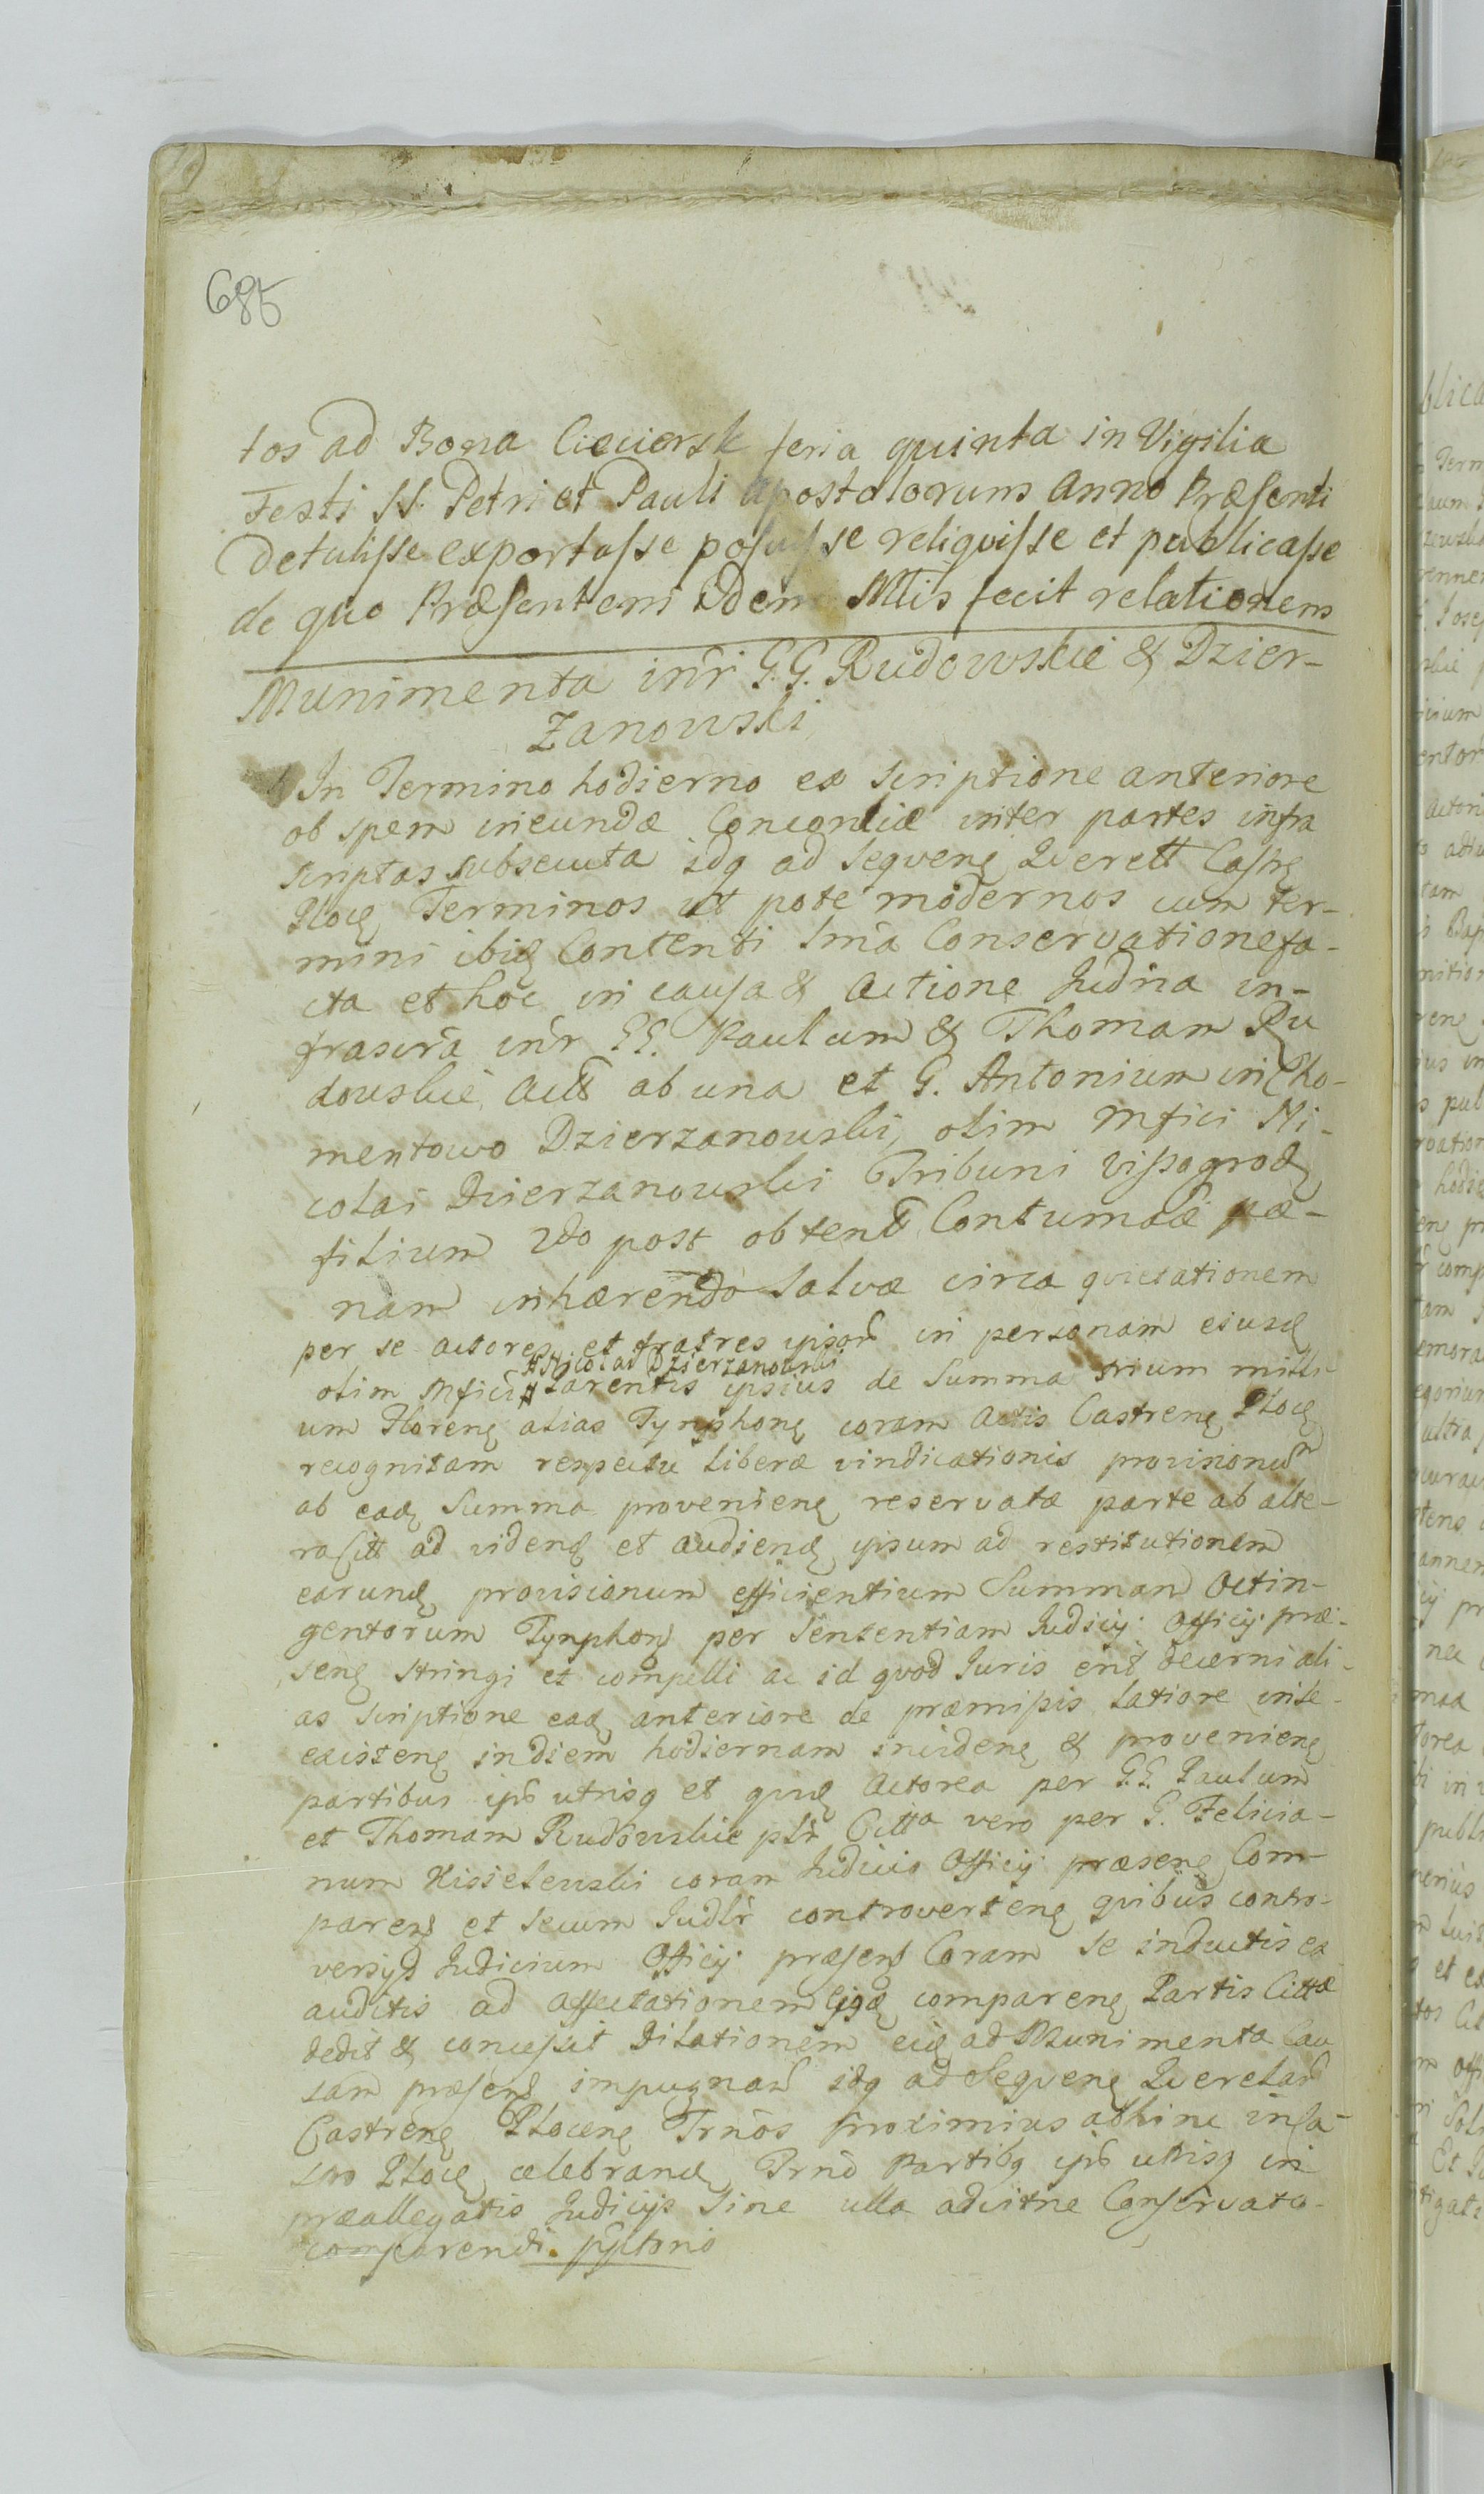 685
tos ad Bona Cieciersk feria quinta in Vigilia
Festi SS. Petri et Pauli Apostolorum Anno Præsenti
Detulisse exportasse posuisse reliquisse et publicasse
de quo Præsentem Idem Mtlis fecit relationem
Munimenta inr̃ G.G. Rudowskie & Dzier-
zanowski
In Termino hodierno ex scriptione anteriore
ob spem ineundæ Concordiæ inter partes infra
scriptas subsecuta idq ad sequenę Querell Castrę
Plocę Terminos ut pote modernos cum ter-
mini ibię Contenti Smã Conservatione fa-
cta et hoc in causa & Actione Judria in-
frascrã inr̃ GG. Paulum & Thomam Ru
dowskie Acts ab una et G. Antonium in Cho-
mentowo Dzierzanowski, olim Mfici Ni-
colai Dzierzanowski Tribuni Vissogrodę
filium 2do post obtent Contumaciæ pæ-
nam inhærendo Salvæ circa quietationem
per se actores et fratres ipsor in personam eiusdę
olim Mfici # Parentis ipsius de Summa trium milli-
# Nicolai Dzierzanowski
um Florenę alias Tynphonę coram Actis Castrenę Plocę
recognitam respectu liberæ vindicationis provisionum
ab eadę Summa provenienę reservatæ parte ab alte-
ra Citt ad videnę et audienę ipsum ad restitutionem
earundę provisionum efficientium Summam Octin-
gentorum Tynphonę per Sententiam Judicij Officij præ-
senę stringi et compelli ac id quod Juris erit decerni ali-
as scriptione eadę anteriore de præmissis latiore inse
existenę in diem hodiernam incidenę & provenienę
partibus ips utrisq et quidę Actorea per G.G. Paulum
et Thomam Rudowskie plr̃ Citta vero per G. Felicia-
num Kisielewski coram Judicio Officij præsenę Com-
parenę et secum Judlr̃ controvertenę quibus contro-
versijs Judicium Officij præsens Coram se inductis ex
auditis ad affectationem comparenę Partis Cittæ
dedit & concessit Dilationem eię ad Munimenta Cau
sam præsenę impugnań idq ad Sequenę Querelar
Castrenę Plocenę Trnõs proximius abhinc in Ca-
stro Plocę celebranę Trnõ Partibq ips utrisq in
præallegatis Judicijs Sine ulla aditne Conservato-
comparendi. ppterio